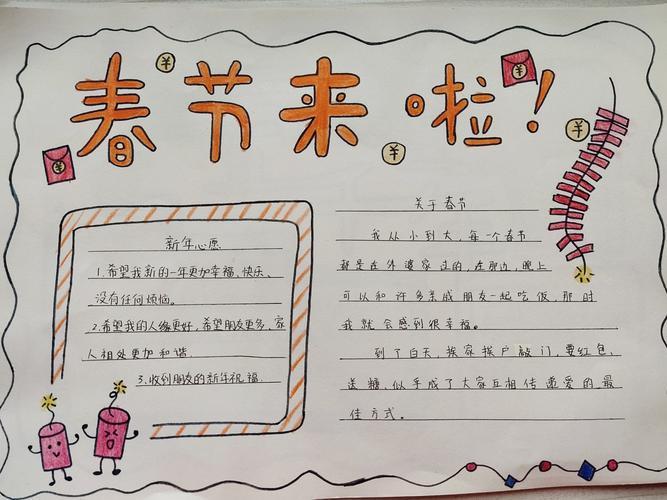 春节来啦!
新年心愿
1.希望我新的一年更加幸福、快乐、
没有任何烦恼。
2.希望我的人缘更好,希望朋友更多,家
人相处更加和谐.
3.收到朋友的新年祝福.
关于春节
我从小到大,每一个春节
都是在外婆家过的,在那边,晚上
可以和许多亲戚朋友一起吃饭,那时
我就会感到很幸福。
到了白天,挨家挨户敲门,要红包、
送糖、似乎成了大家互相传递爱的最
佳方式。
¥
¥
¥
¥
¥